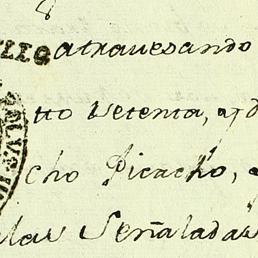 atravesando
tto Vetenta, y d
cho Picacho, a
las Señaladas